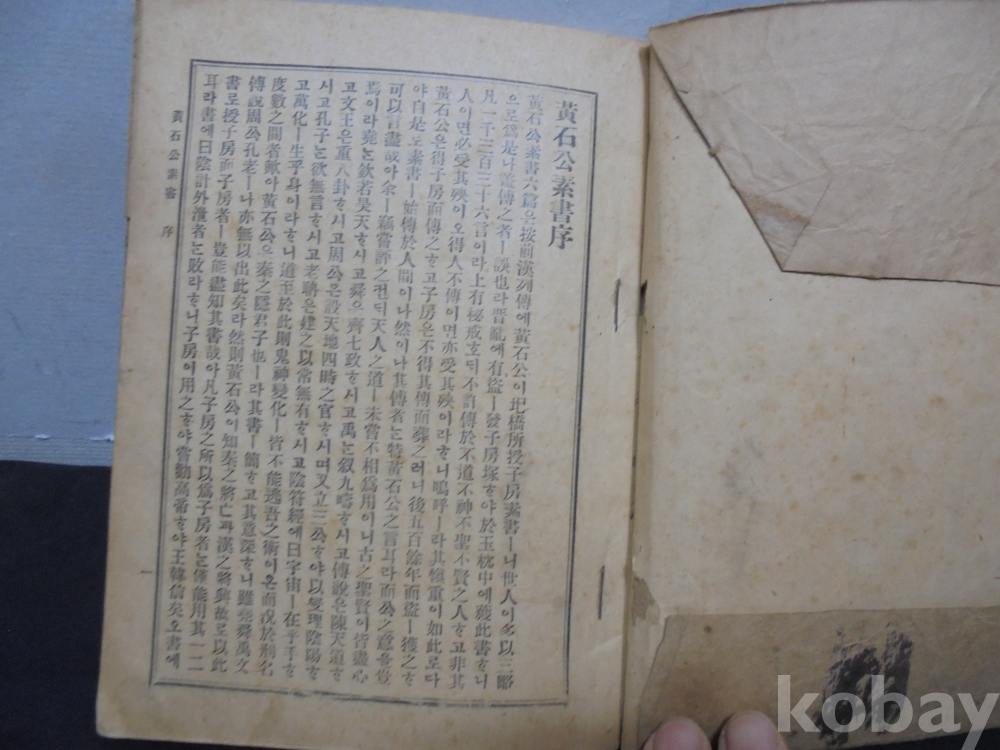 黃石公素書序
黃石公素書六篇은按前漢列傳에黃石公이圯橋所授子房素書ㅣ니世人이多以三略
으로爲是나盖傳之者ㅣ誤也라晋亂에有盜ㅣ發子房塚ᄒᆞ야於玉枕中에獲此書ᄒᆞ니
凡一千三百三十六言이라上有秘戒호ᄃᆡ不許傳於不道不神不聖不賢之人ᄒᆞ고非其
人이면必受其殃이오得人不傳이면亦受其殃이라ᄒᆞ니嗚呼ㅣ라其愼重이如此로다
黃石公은得子房而傳之ᄒᆞ고子房은不得其傳而葬之러니後五百餘年而盜ㅣ獲之ᄒᆞ
야自是로素書ㅣ始傳於人間이나然이나其傳者ᄂᆞᆫ特黃石公之言耳라而公之意을豈
可以言盡哉아余ㅣ竊嘗評之컨ᄃᆡ天人之道ㅣ未嘗不相爲用이니古之聖賢이皆盡心
焉이라堯ᄂᆞᆫ欽若昊天ᄒᆞ시고舜으齊七政ᄒᆞ시고禹ᄂᆞᆫ叙九疇ᄒᆞ시고傅說은陳天道ᄒᆞ
고文王은重八卦ᄒᆞ시고周公은設天地四時之官ᄒᆞ시며又立三公ᄒᆞ야以燮理陰陽ᄒᆞ
시고孔子ᄂᆞᆫ欲無言ᄒᆞ시고老聃은建之以常無有ᄒᆞ시고陰符經에曰宇宙ㅣ在乎手ᄒᆞ
고萬化ㅣ生乎身이라ᄒᆞ니道至於此則鬼神變化ㅣ皆不能逃吾之術이온而况於刑名
度數之間者歟아黃石公으秦之隱君子也ㅣ라其書ㅣ簡ᄒᆞ고其意深ᄒᆞ니雖堯舜禹文
傅說周公孔老ㅣ나亦無以出此矣라然則黃石公이知秦之將亡과漢之將興故로以此
書로授子房而子房者ㅣ豈能盡知其書哉아凡子房之所以爲子房者ᄂᆞᆫ僅能用其一二
耳라書에曰陰計外泄者ᄂᆞᆫ敗라ᄒᆞ니子房이用之ᄒᆞ야嘗勸高帝ᄒᆞ야王韓信矣오書에
黃石公素書 序
一
kobay